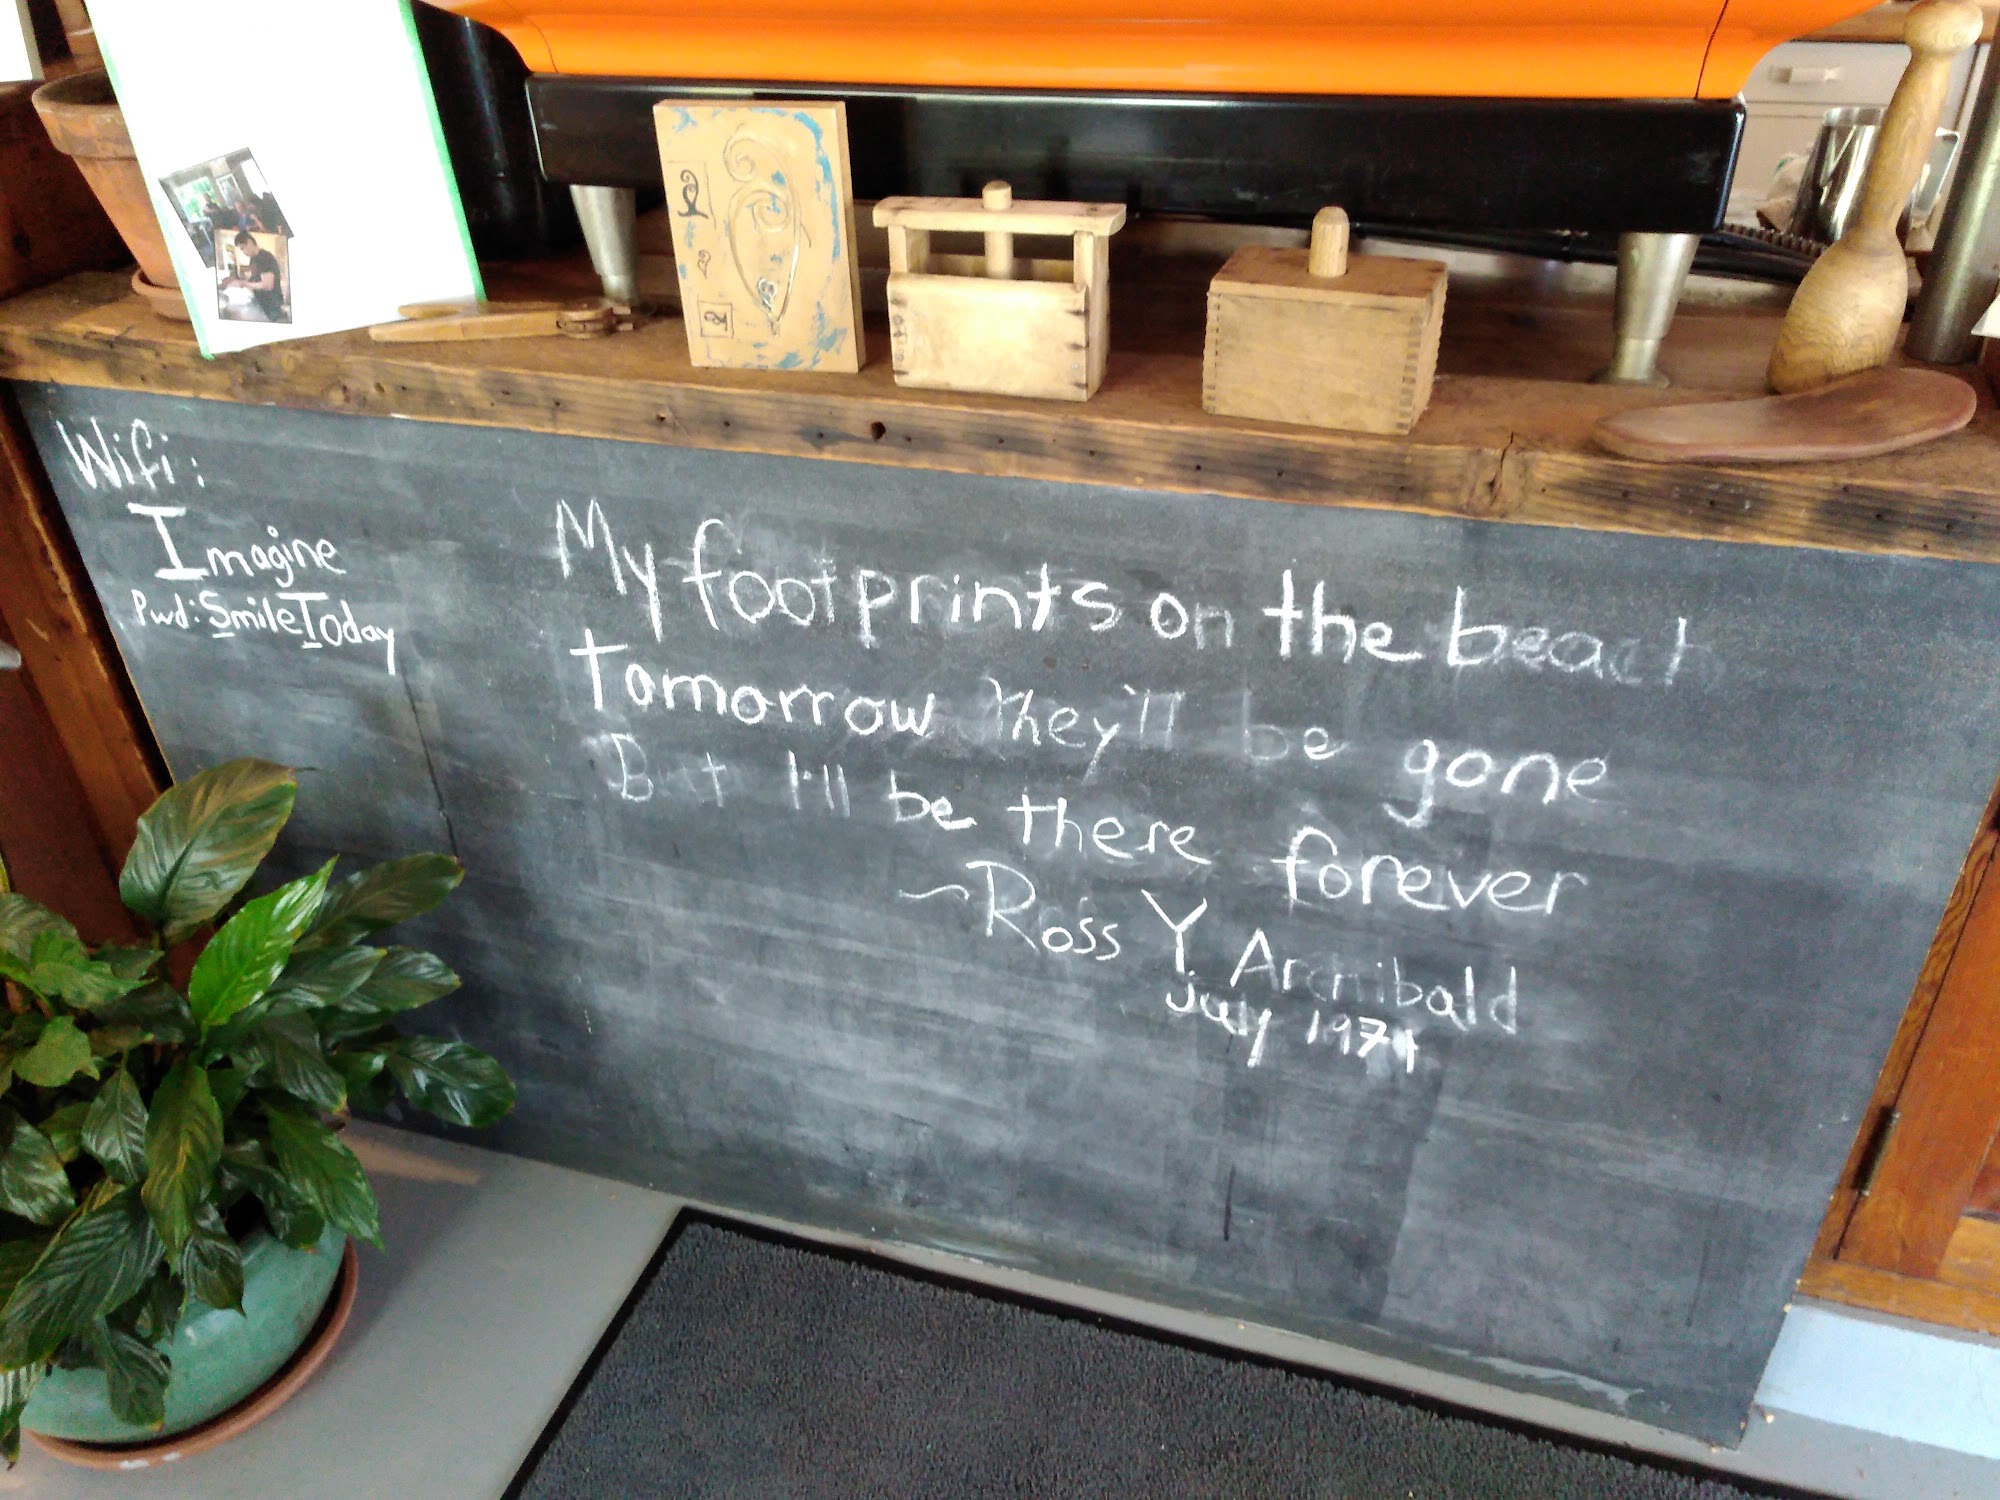 Wifi:
Imagine
Pwd: SmileToday
My footprints on the beach
tomorrow they'll be gone
But I'll be there forever
~Ross Y. Archibald
July 1971